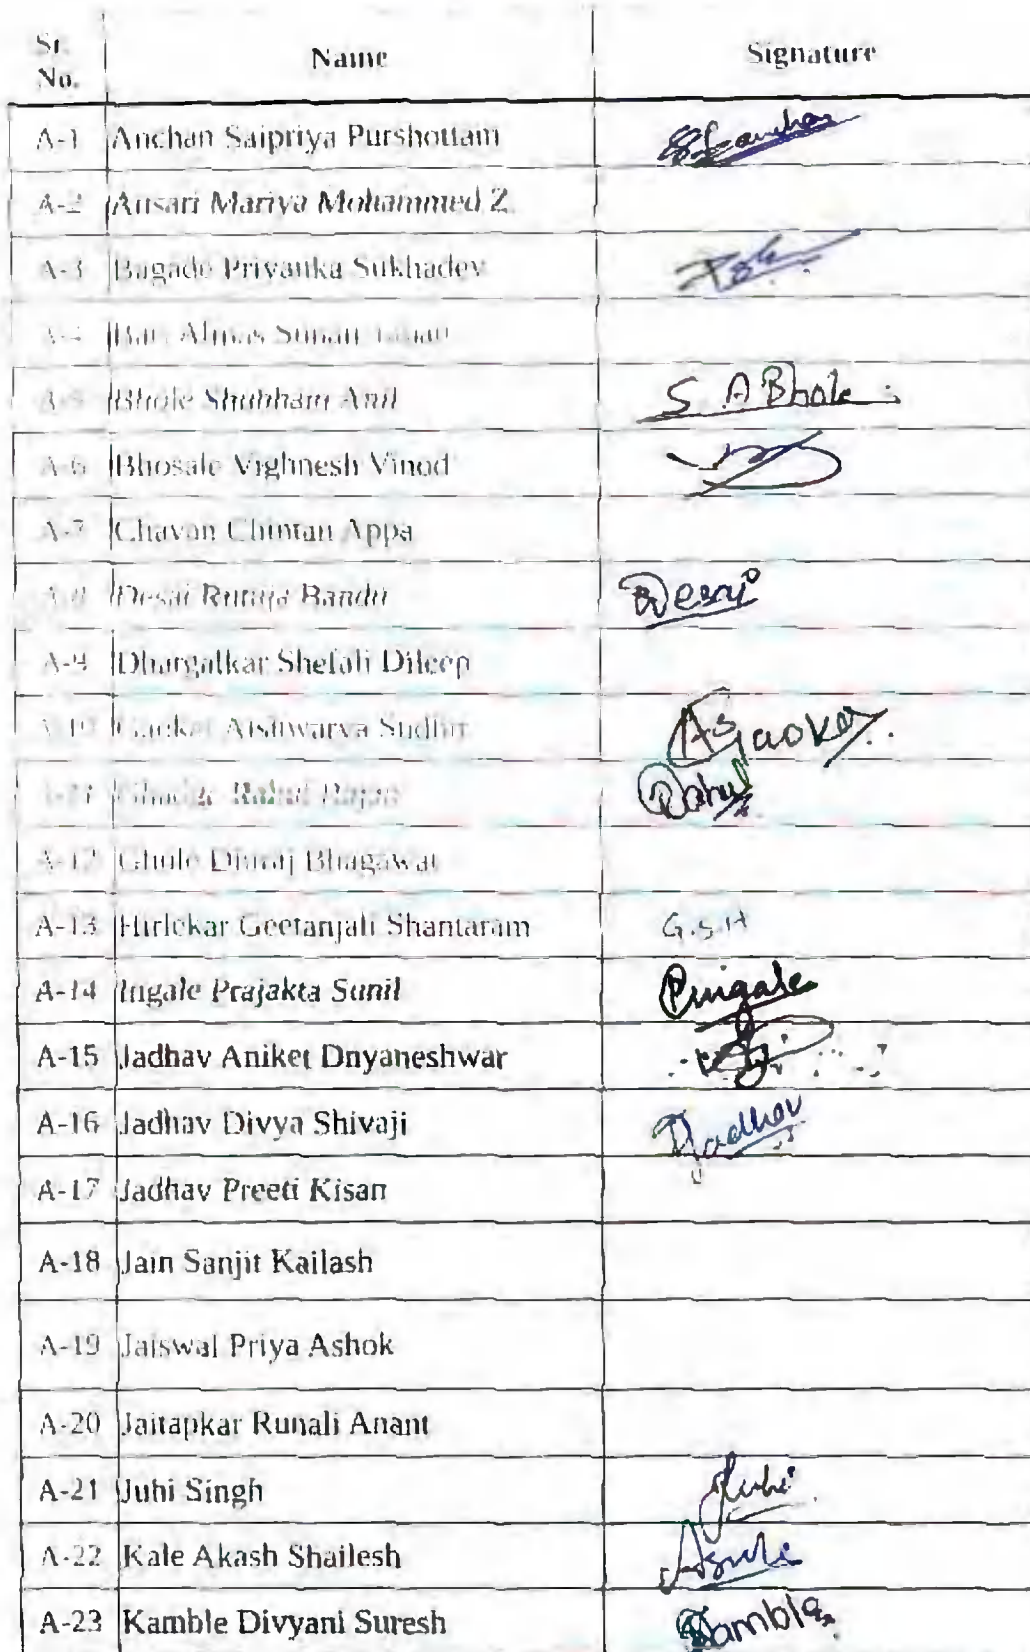 Sr. No. Name Signature
A-1 Anchan Saipriya Purshottam
A-2 Ansari Mariya Mohammed Z.
A-3 Bagade Priyanka Sukhadev
A-4
A-5 Bhole Shubham Anil S. A Bhole
A-6 Bhosale Vighnesh Vinod
A-7 Chavan Chintan Appa
A-8 Desai Rutuja Bandu Desai
A-9 Dhargalkar Shefali Dileep
A-10 Gaokar Aishwarya Sudhir
A-11 Rahul Rahul
A-12 Dhiraj Bhagawat
A-13 Hirlekar Geetanjali Shantaram G.S.H
A-14 Ingale Prajakta Sunil Pingale
A-15 Jadhav Aniket Dnyaneshwar
A-16 Jadhav Divya Shivaji Djadhav
A-17 Jadhav Preeti Kisan
A-18 Jain Sanjit Kailash
A-19 Jaiswal Priya Ashok
A-20 Jaitapkar Runali Anant
A-21 Juhi Singh Juhi
A-22 Kale Akash Shailesh
A-23 Kamble Divyani Suresh